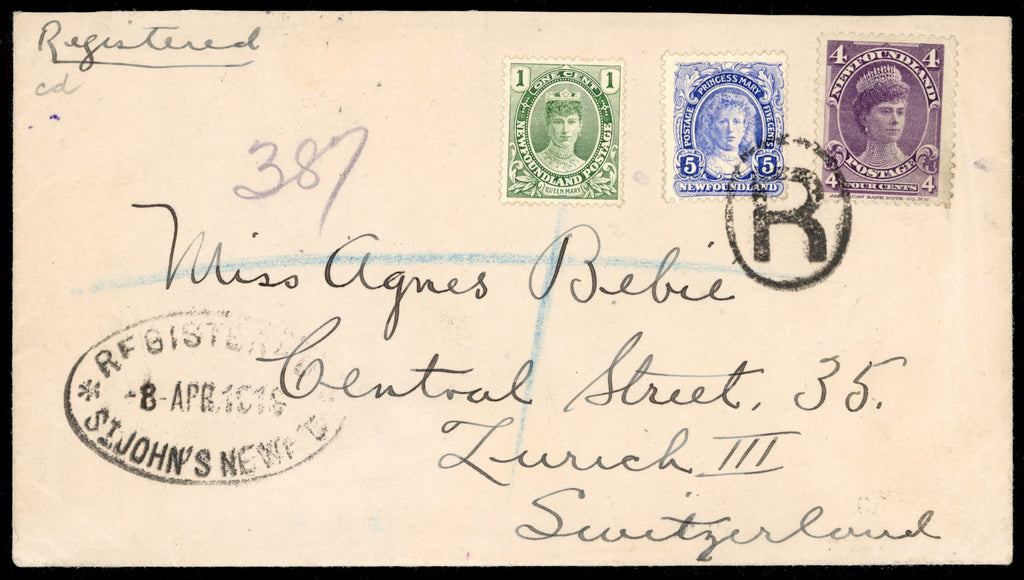 Registered
cd
387
1 ONE CENT 1
NEWFOUNDLAND POSTAGE
QUEEN MARY
PRINCESS MARY
POSTAGE FIVE CENTS
5 5
NEWFOUNDLAND
4 4
NEWFOUNDLAND
POSTAGE
4 FOUR CENTS 4
BANK NOTE CO. N.Y.
R
Miss Agnes Bebie
Central Street, 35.
Zurich III
Switzerland
REGISTERED
* 8 APR.
ST JOHN'S NEWF'D